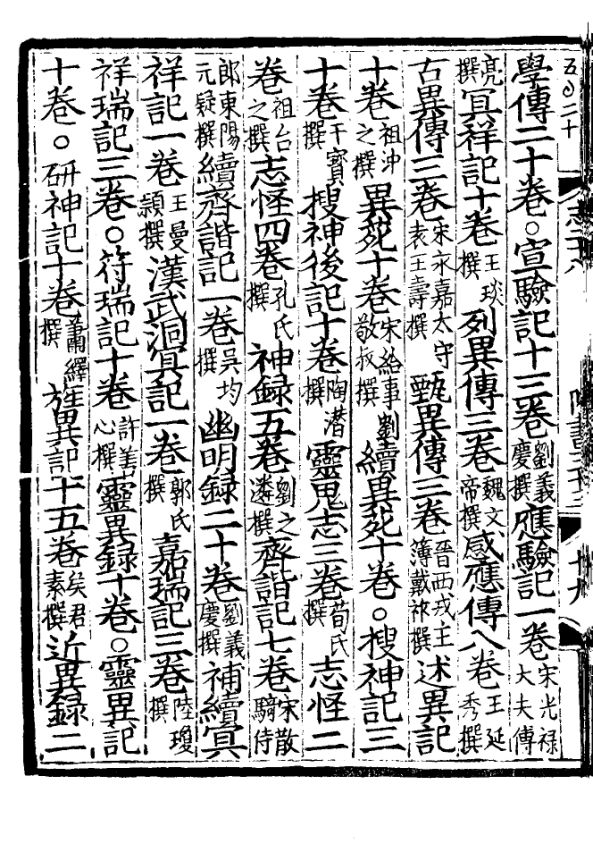 五〇二十
學傳二十卷。宣驗記十三卷劉義慶撰應驗記一卷宋光祿大夫傅
亮撰冥祥記十卷王琰撰列異傳三卷魏文帝撰感應傳八卷王延秀撰
古異傳三卷宋永嘉太守袁王壽撰甄異傳三卷晉西戎主簿戴祚撰述異記
十卷祖沖之撰異苑十卷宋給事劉敬叔撰續異苑十卷。搜神記三
十卷干寶撰搜神後記十卷陶潛撰靈鬼志三卷荀氏撰志怪二
卷祖台之撰志怪四卷孔氏撰神録五卷劉之遴撰齊諧記七卷宋散騎侍
郎東陽元疑撰續齊諧記一卷吳均撰幽明録二十卷劉義慶撰補續冥
祥記一卷王曼頴撰漢武洞冥記一卷郭氏撰嘉瑞記三卷陸瓊撰
祥瑞記三卷。符瑞記十卷許善心撰靈異録十卷。靈異記
十卷。研神記十卷蕭繹撰旌異記十五卷矦君素撰近異録二